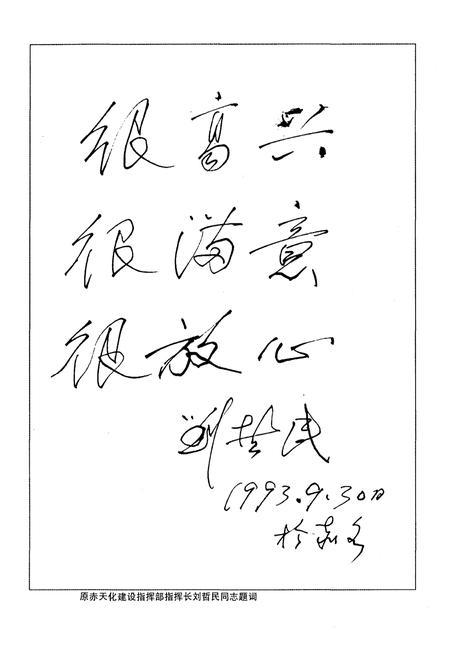 很高兴
很满意
很放心
刘哲民
1993.9.30日
于赤
原赤天化建设指挥部指挥长刘哲民同志题词